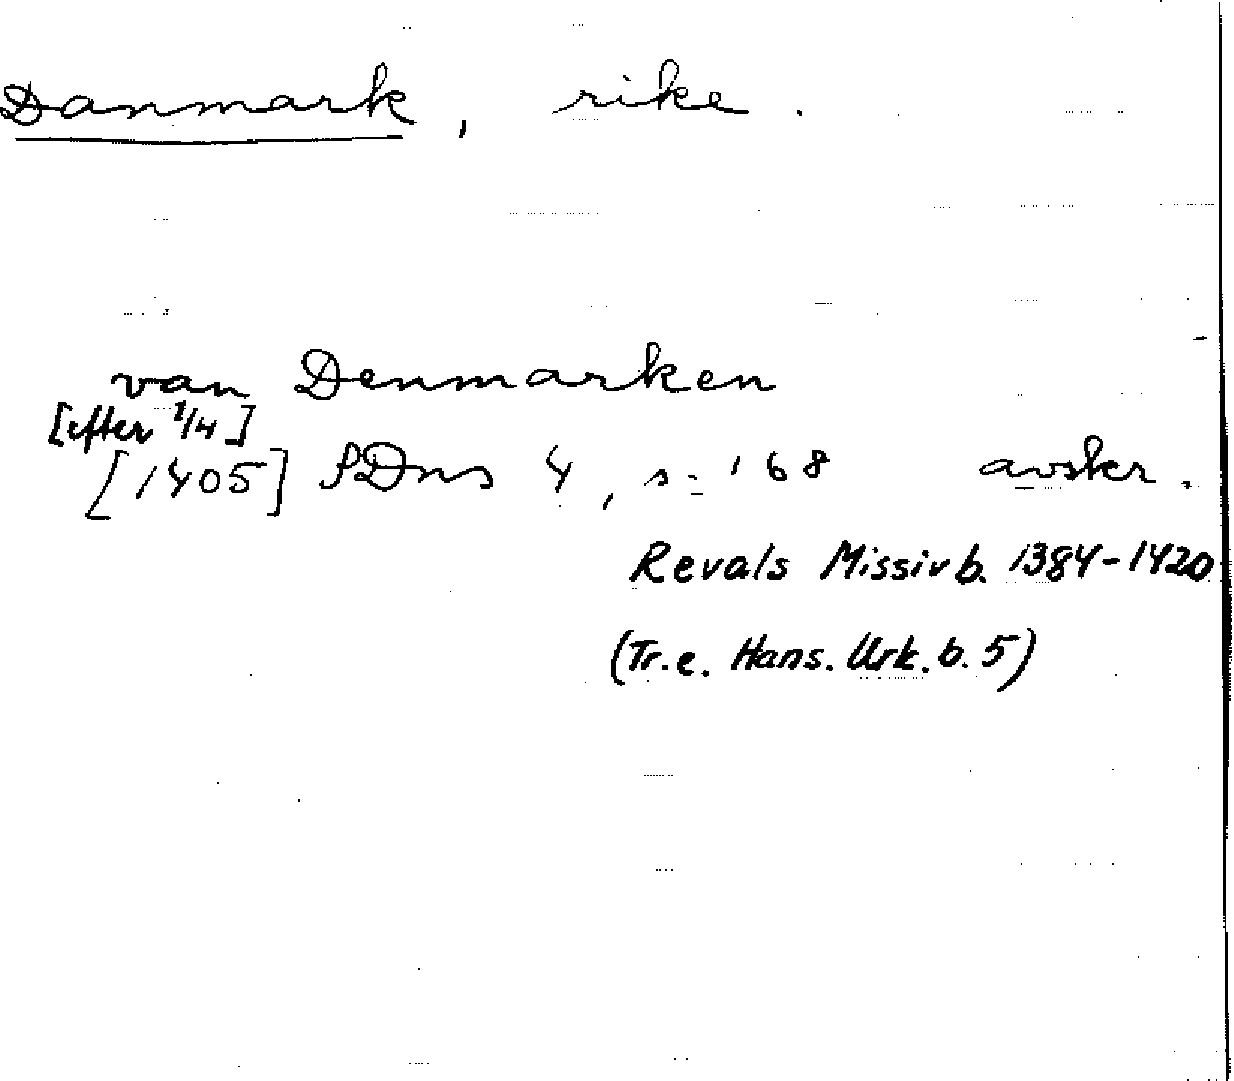 Danmark, rike.
van Denmarken
[efter 1/4]
[1405] SDns 4, s. 168 avskr.
Revals Missivb. 1384-1420
(Tr. e. Hans. Urk. b. 5)